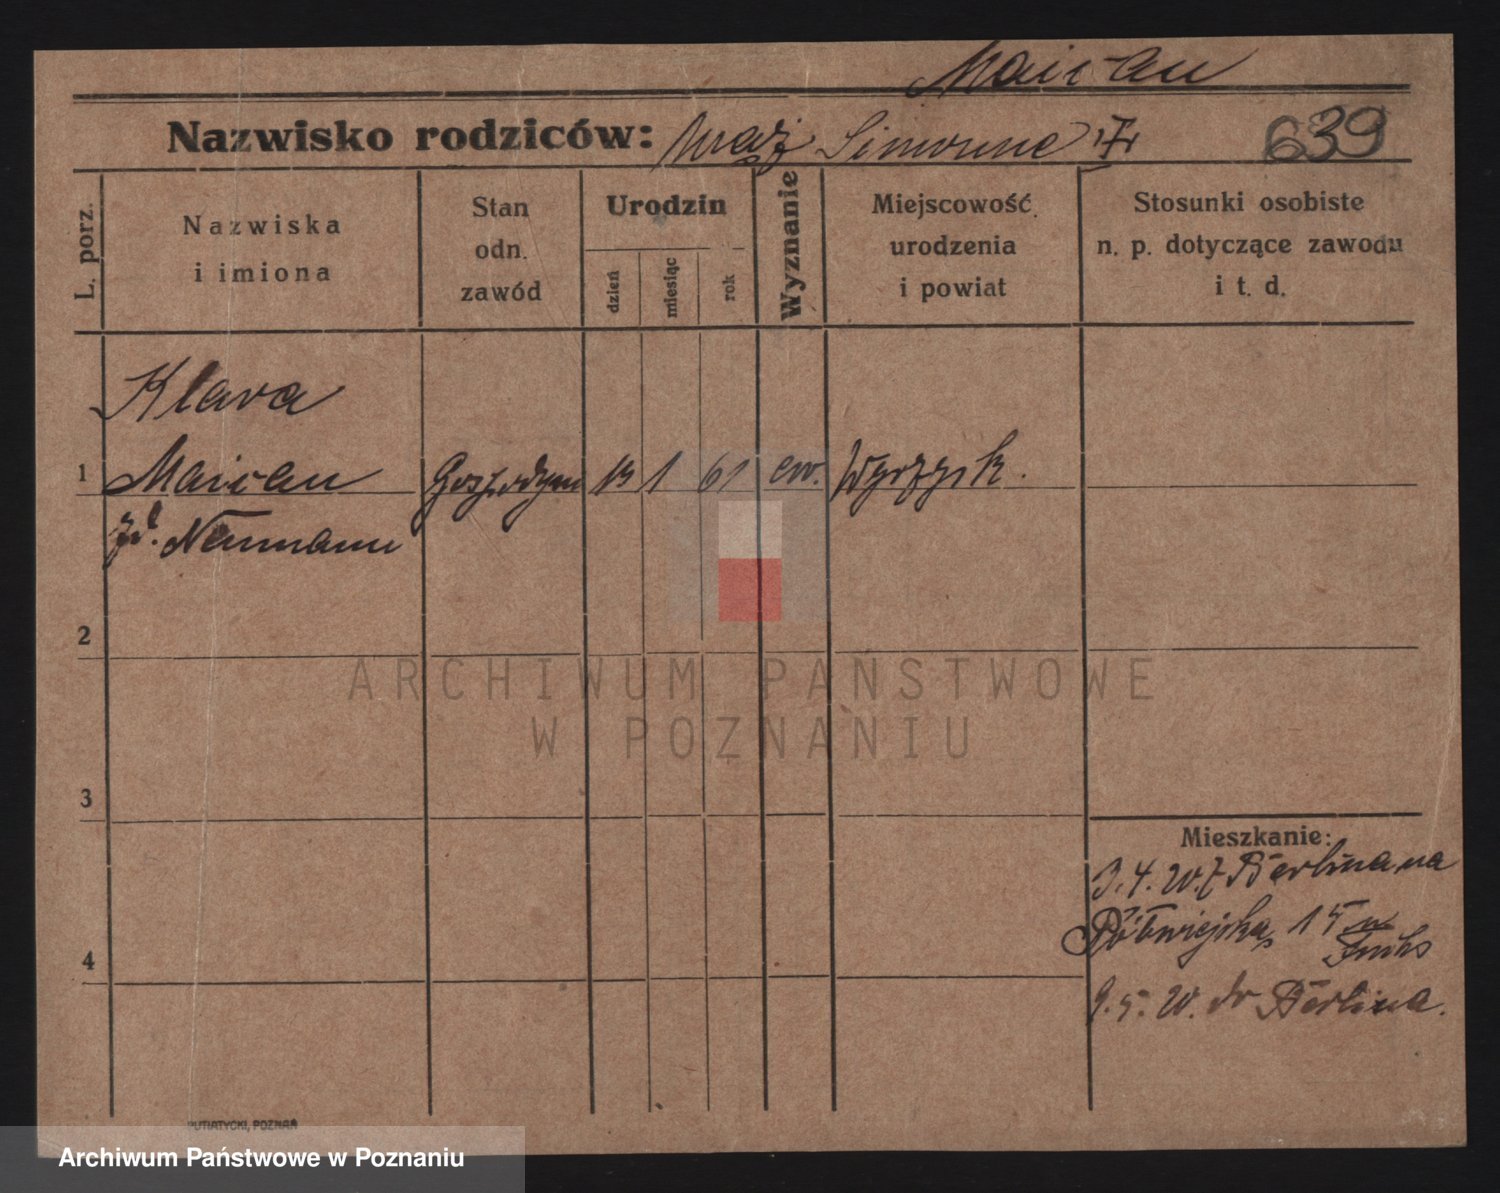 Nazwisko rodziców: mąż
639
L. porz.
Nazwiska i imiona
Stan odn. zawód
Urodzin
dzień
miesiąc
rok
Wyznanie
Miejscowość urodzenia i powiat
Stosunki osobiste n. p. dotyczące zawodu i t. d.
Klara
1 Gospodyni 13 1 61 ew. Wyrzysk.
Neumann
2
3
4
Mieszkanie:
3. 4. 20. z Berlina na
Półwiejską 15 u
Fuchs
9. 5. 20. do Berlina.
PUTIATYCKI, POZNAŃ
ARCHIWUM PAŃSTWOWE
W POZNANIU
Archiwum Państwowe w Poznaniu